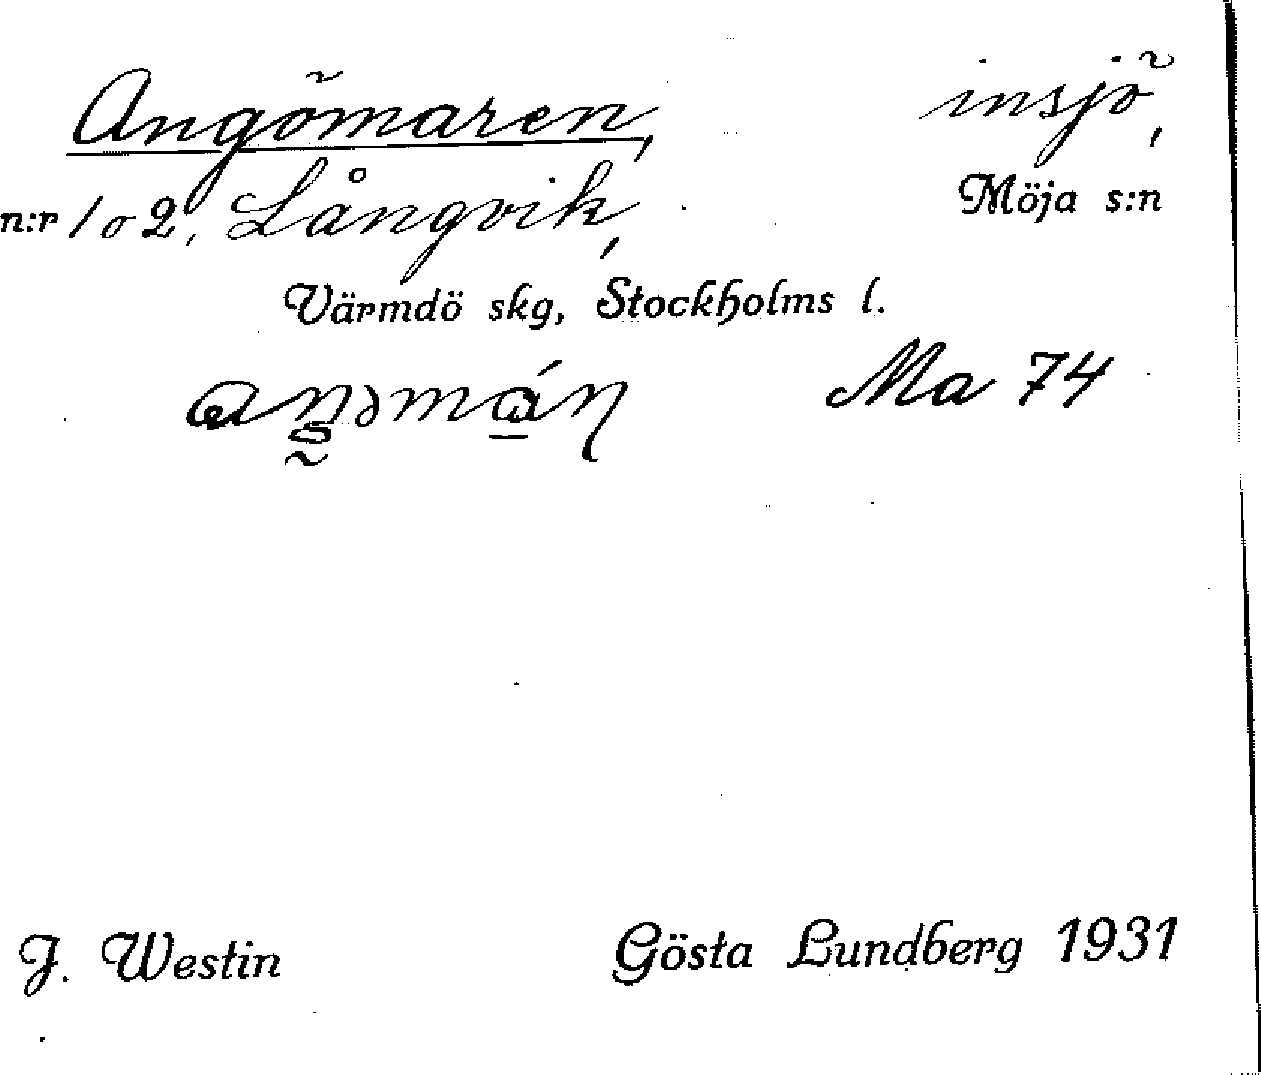 Angömaren, insjö,
n:r 102, Långvik, Möja s:n
Värmdö skg, Stockholms l.
Ma 74
J. Westin Gösta Lundberg 1931